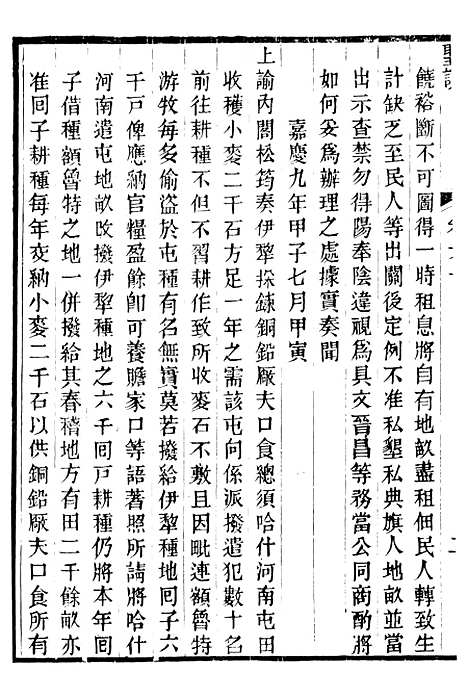 聖訓
饒裕斷不可圖得一時租息將自有地畝盡租佃民人轉致生
計缺乏至民人等出關後定例不准私墾私典旗人地畝並當
出示查禁勿得陽奉陰違視爲具文晉昌等務當公同商酌將
如何妥爲辦理之處據實奏聞
嘉慶九年甲子七月甲寅
上諭內閣松筠奏伊犂採鍊銅鉛厰夫口食總須哈什河南屯田
收穫小麥二千石方足一年之需該屯向係派撥遣犯數十名
前往耕種不但不習耕作致所收麥石不敷且因毗連額魯特
游牧每多偷盜於屯種有名無實莫若撥給伊犂種地囘子六
千戸俾應納官糧盈餘卽可養贍家口等語著照所請將哈什
河南遣屯地畝改撥伊犂種地之六千囘戸耕種仍將本年囘
子借種額魯特之地一併撥給其春稽地方有田二千餘畝亦
准囘子耕種每年交納小麥二千石以供銅鉛厰夫口食所有